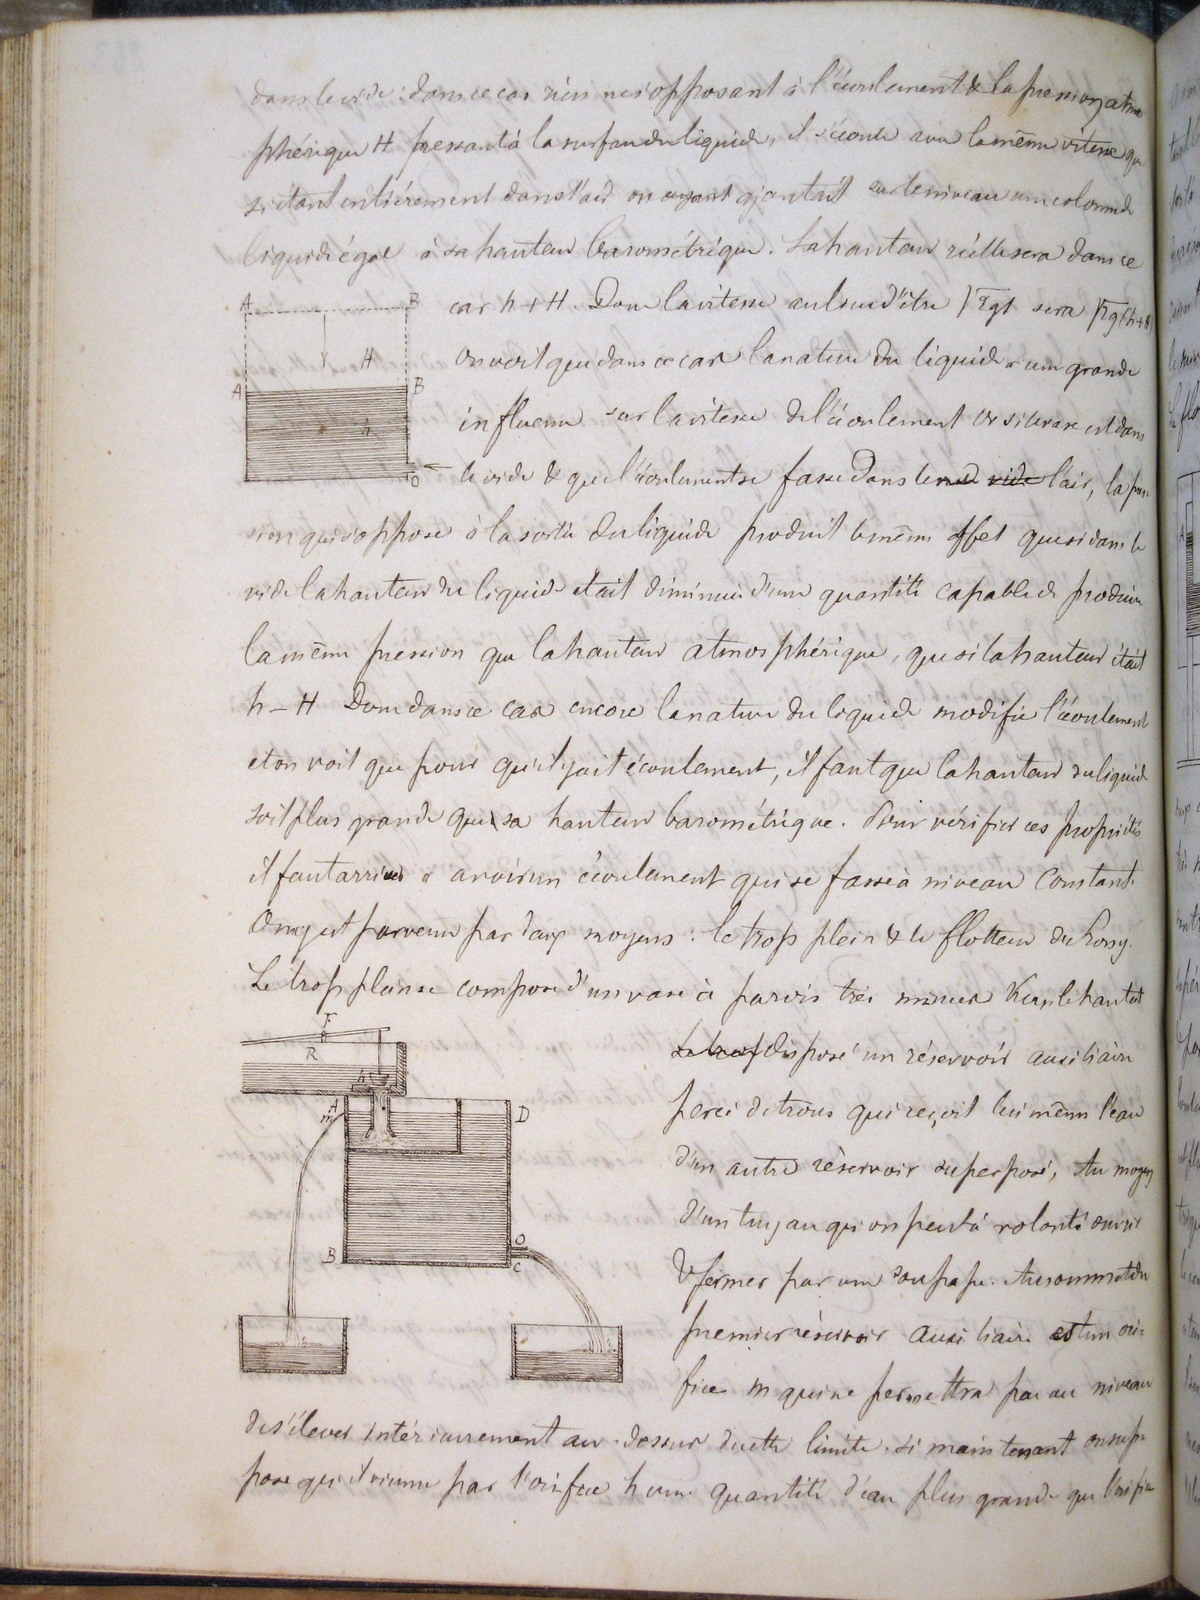 dans le vide : dans ce cas rien ne s'opposant à l'écoulement & la pression atmos
phérique H pressant à la surface du liquide, il s'écoule avec la même vitesse que
si étant entièrement dans l'air on ayant ajoutait sur le niveau une colonne de
liquide égale à sa hauteur barométrique. La hauteur réelle sera dans ce
A B
cas h + H. Donc la vitesse au lieu d'être √2gh sera √2g(h+H)
H
on voit que dans ce cas la nature du liquide a une grande
A B
influence sur la vitesse de l'écoulement or si le vase est dans
h
le vide & que l'écoulement se fasse dans le vide l'air, la pres
O
sion qui s'oppose à la sortie du liquide produit le même effet que si dans le
vide la hauteur du liquide était diminuée d'une quantité capable de produire
la même pression que la hauteur atmosphérique, que si la hauteur était
h - H Donc dans ce cas encore la nature du liquide modifie l'écoulement
et on voit que pour qu'il y ait écoulement, il faut que la hauteur du liquide
soit plus grande que sa hauteur barométrique. Pour vérifier ces propriétés
il faut arriver à avoir un écoulement qui se fasse à niveau constant.
On y est parvenu par deux moyens : le trop plein & le flotteur de Prony.
Le trop plein se compose d'un vase à parois très minces vers le haut est
F
R
disposé un réservoir auxiliaire
A
m D
percé de trous qui reçoit lui même l'eau
d'un autre réservoir superposé, Au moyen
d'un tuyau qu'on peut à volonté ouvrir
B O
C
& fermer par une soupape. Au sommet du
premier réservoir auxiliaire est un ori-
fice m qui ne permettra pas au niveau
de s'élever intérieurement au-dessus de cette limite. Si maintenant on sup-
pose qu'il vienne par l'orifice h une quantité d'eau plus grande que l'orifice